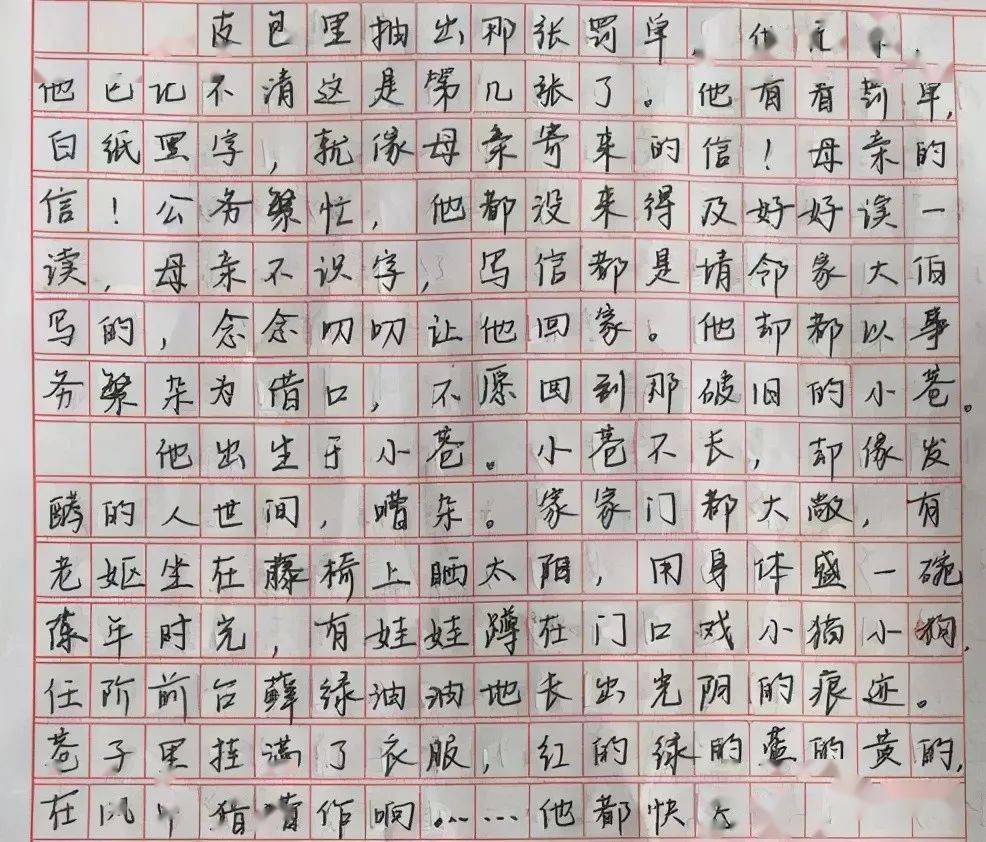 皮包里抽出那张罚单，
他已记不清这是第几张了。他有看罚单，
白纸黑字，就像母亲寄来的信！母亲的
信！公务繁忙，他都没来得及好好读一
读，母亲不识字，写信都是请邻家大伯
写的，念念叨叨让他回家。他却都以事
务繁杂为借口，不愿回到那破旧的小巷。
他出生于小巷。小巷不长，却像发
酵的人世间，嘈杂。家家门都大敞，有
老妪坐在藤椅上晒太阳，用身体盛一碗
陈年时光，有娃娃蹲在门口戏小猫小狗，
任阶前台藓绿油油地长出光阴的痕迹。
巷子里挂满了衣服，红的绿的蓝的黄的，
在风中猎猎作响……他都快